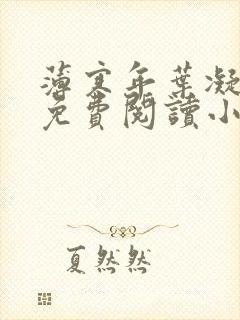 薄寒年葉凝
免費閱讀小
夏然然